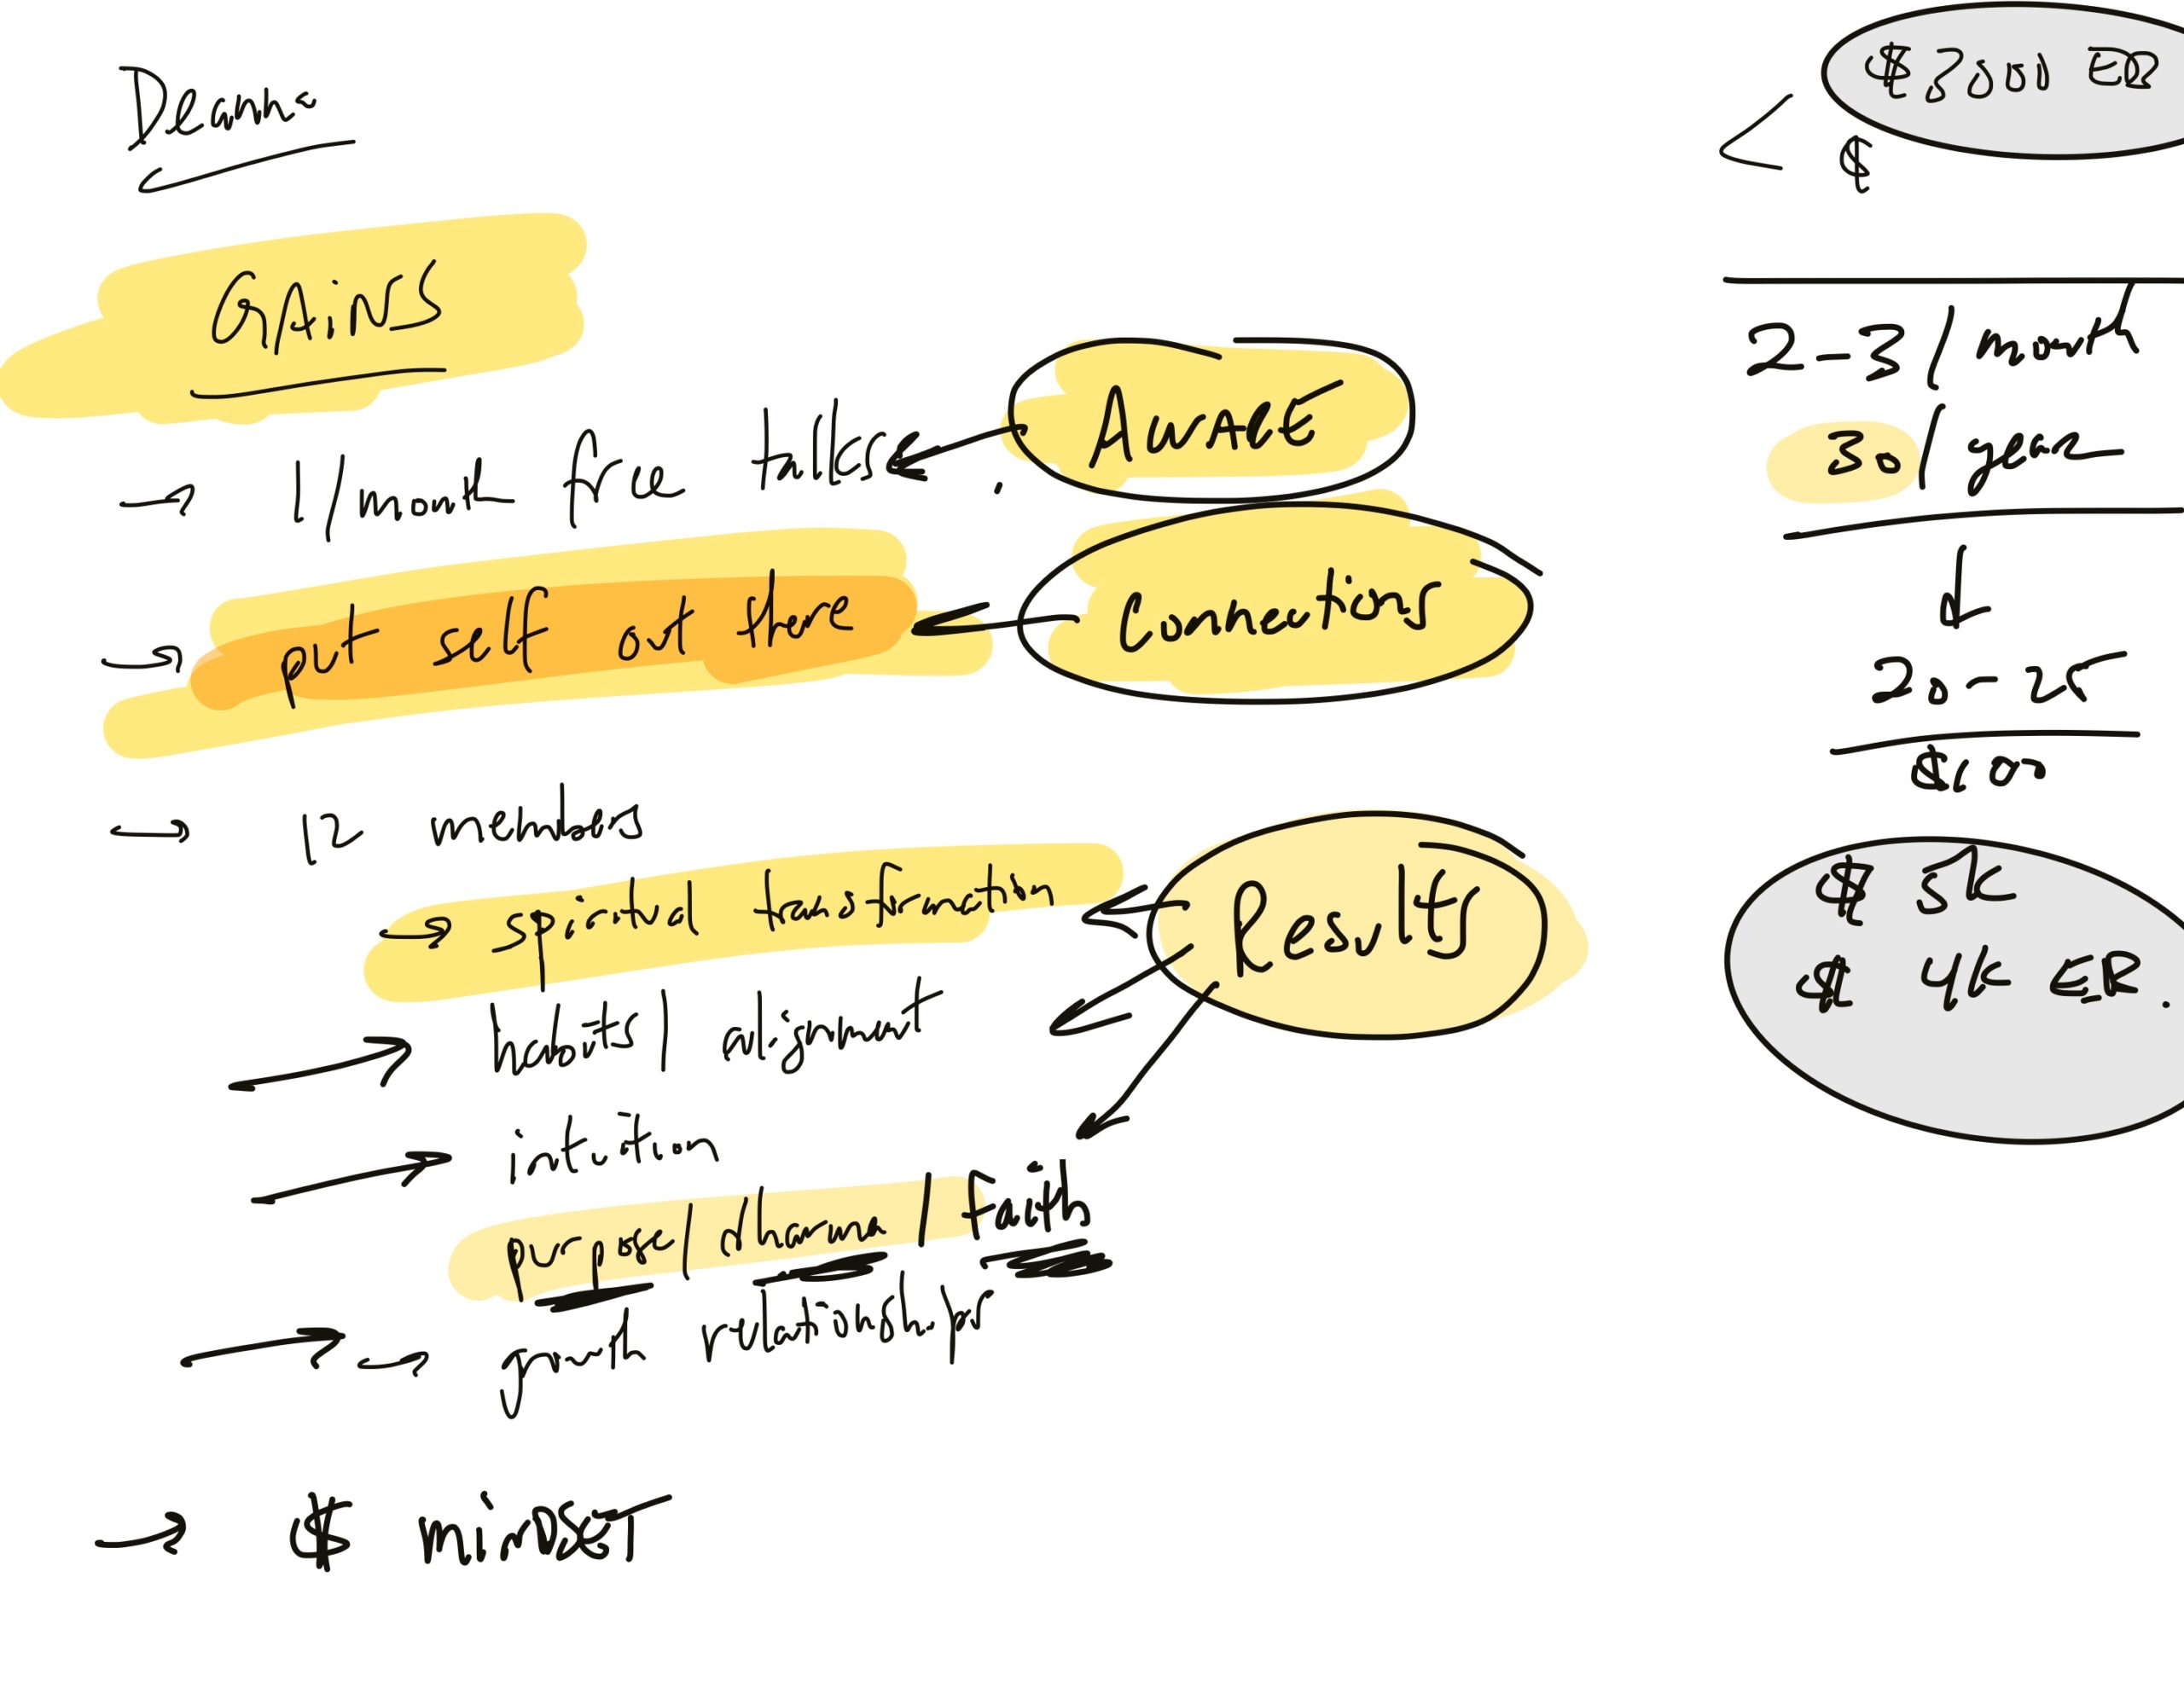 Deanna
GAiNS
→ 1/month free talks
AWARE
→ put self out there
Connections
→ 12 members
→ spiritual transformation
Results
→ habits/ alignment
→ intuition
purpose/ dharma / Faith
→ → growth relationships
→ $ minDSET
< $3000 EB
$
2-3/month
30/year
20-25
$100
$ 5k
$ 4k EB.